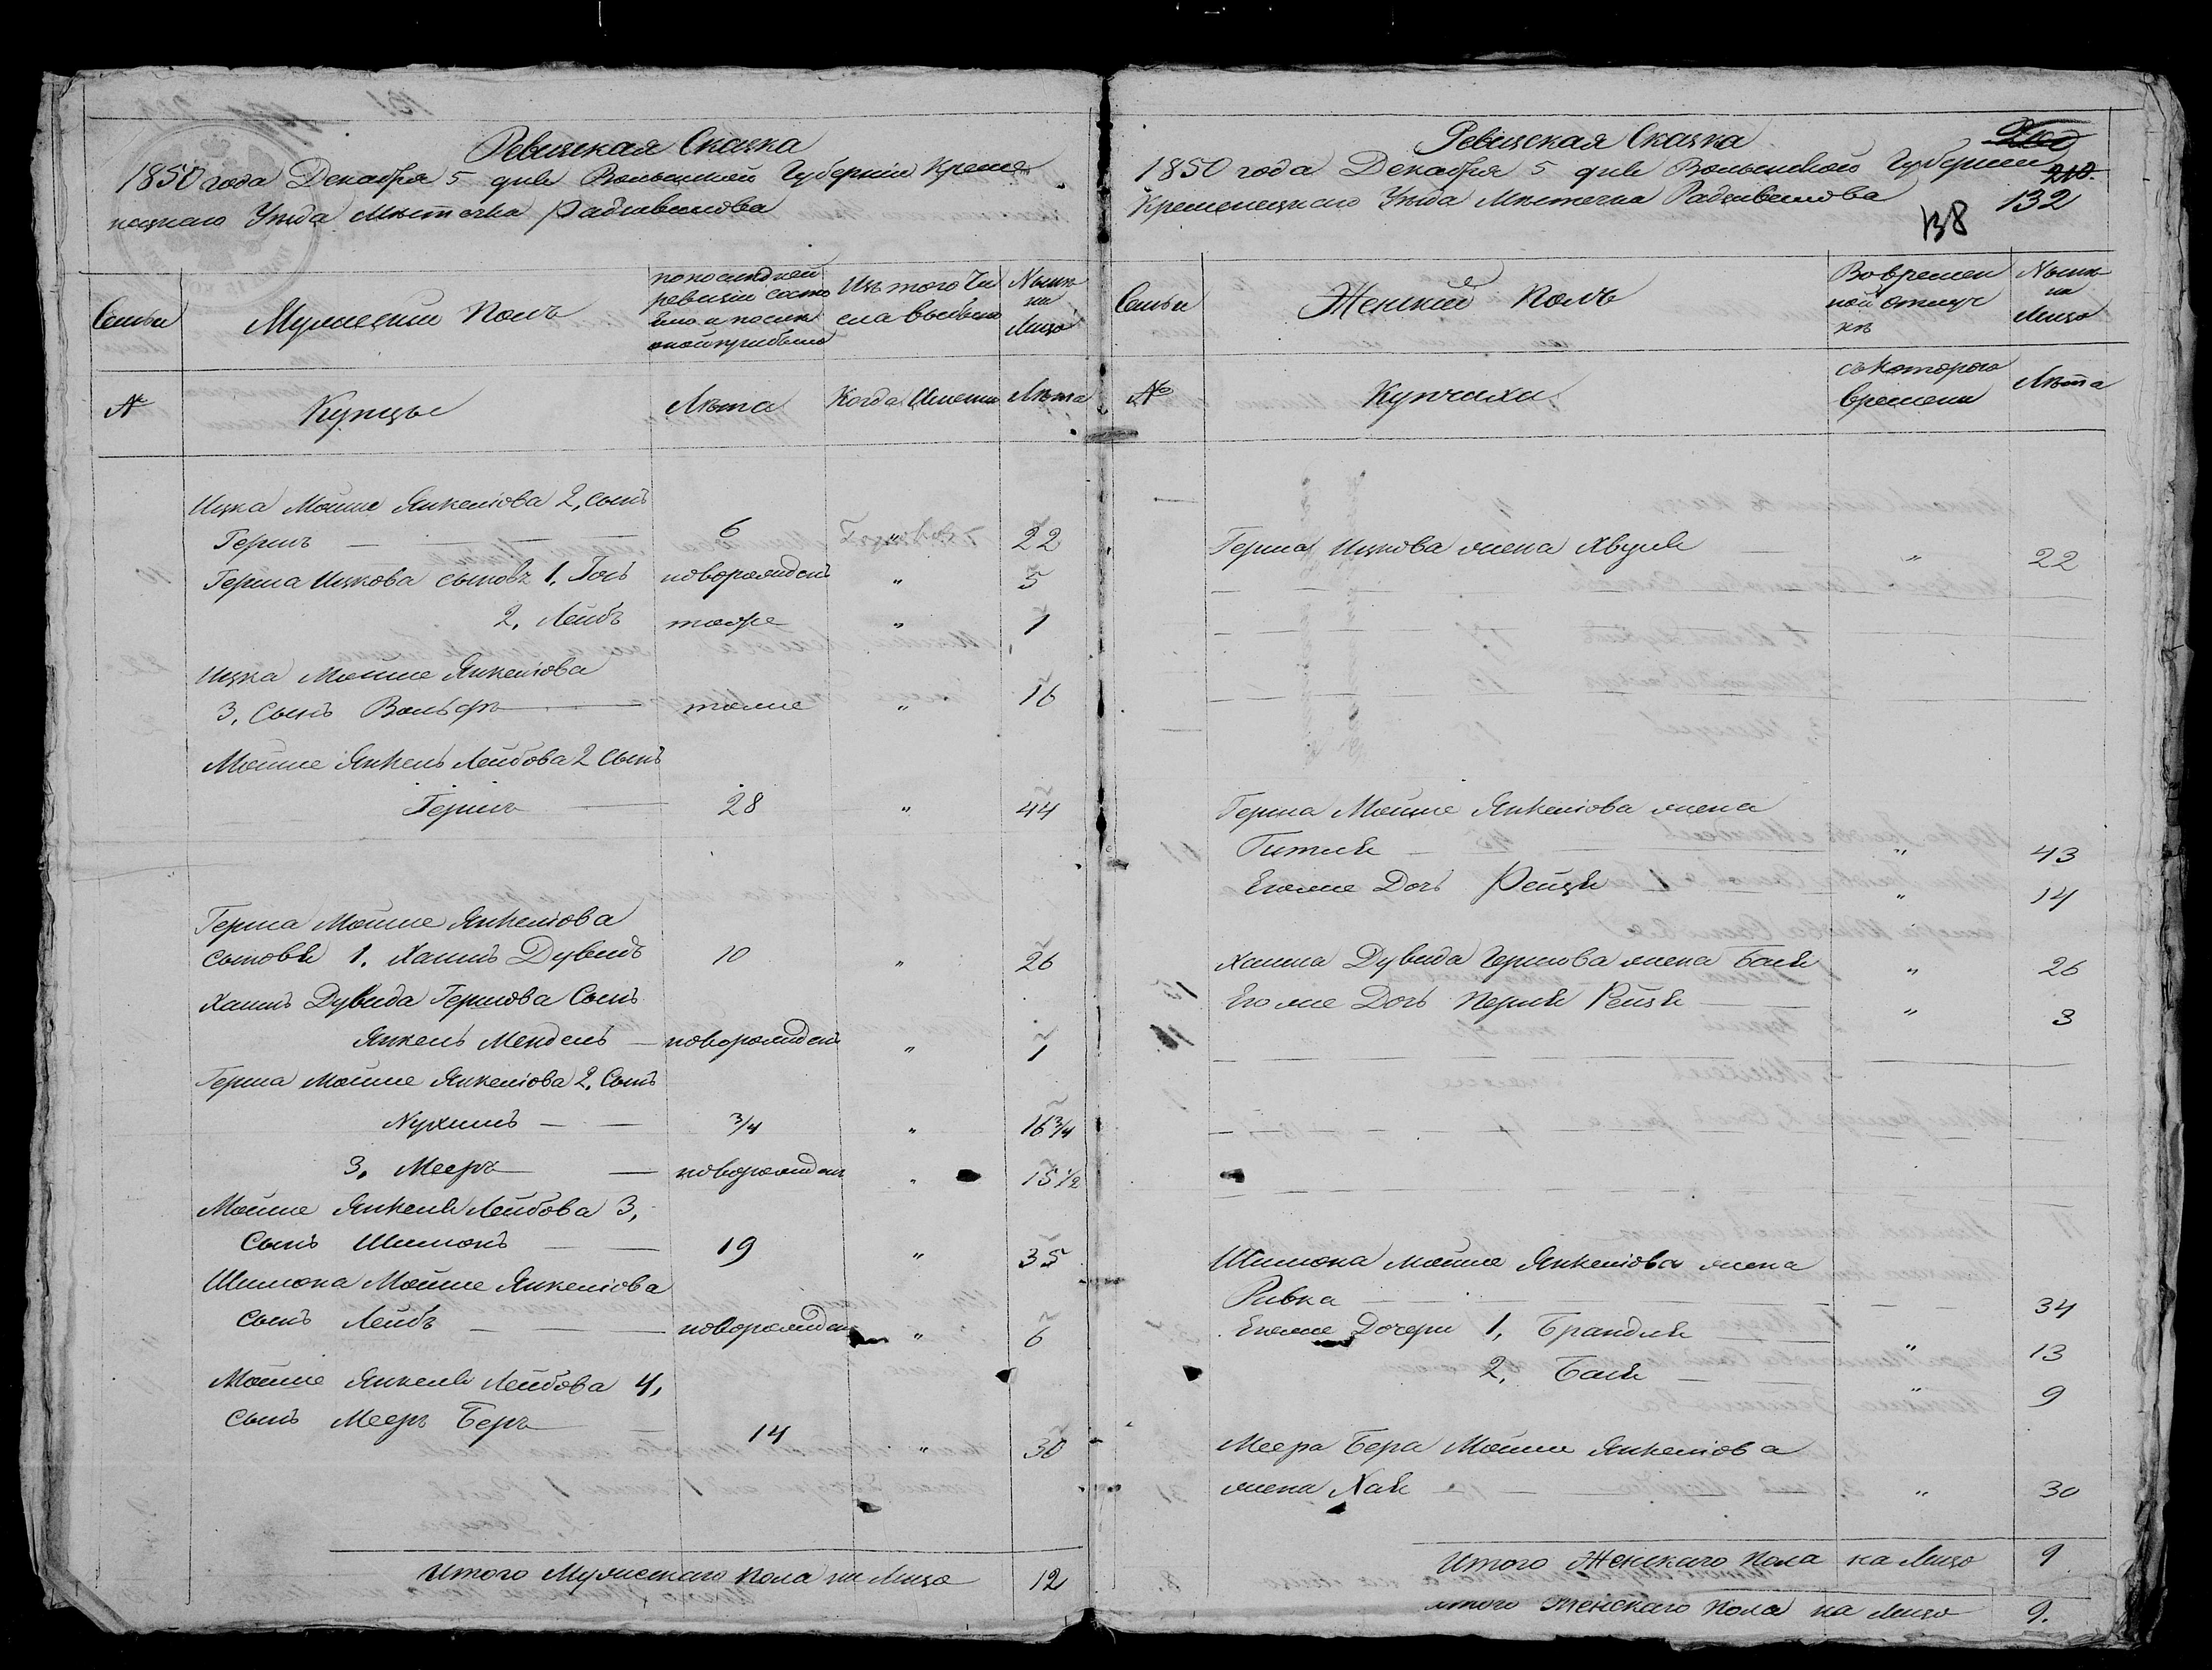 Ревизская Сказка
1850 года Декабря 5 дня Волынской Губернии Креме
нецкаго Уезда Местечка Радзивилова
Семьи
Мужеский Полъ
по последней
ревизии состо
яло и после
оной прибыло
Изъ того чи
сла выбыло
Ныне
на
Лицо
№
Купцы
Лета
Когда Именно
Лета
Ицка Мошко Янкелiова 2, сынъ
Гершъ 6 " 22
Герша Ицкова сыновъ 1, новорожденъ " 5
2, Лейбъ тоже " 1
Ицка Мошко Янкелiова
3, Сынъ Вольфъ тоже " 16
Мошко Янкель Лейбова 2 Сынъ
Гершъ 28 " 44
Герша Мошко Янкелiова
сыновья 1. Хаимъ Дувидъ 10 " 26
Хаимъ Дувида Гершова Сынъ
Янкель Мендель новорожденъ " 1
Герша Мошко Янкелiова 2, Сынъ
Нухимъ 3/4 " 16 3/4
3, Мееръ новорожден " 15 1/2
Мошко Янкеля Лейбова 3,
Сынъ Шимонъ 19 " 35
Шимона Мошко Янкелiова
сынъ Лейбъ новорожден " 6
Мошко Янкеля Лейбова 4,
сынъ Мееръ Беръ 14 " 30
Итого Мужескаго пола на Лицо 12
Ревизская Сказка
1850 года Декабря 5 дня Волынской Губернии
Кременецкаго Уезда Местечка Радзивилова
210.
132
138
Семьи
Женский Полъ
Во времен
ной отлуч
ке
Ныне
на
Лицо
№
Купчиха
съ котораго
времени
Лета
Герша Ицкова жена " 22
Герша Мошко Янкелiова жена
Гитля " 43
Его же Дочь Рейзя " 14
Хаима Дувида Гершова жена Бася " 26
Его же Дочь Перля Рейзя " 3
Шимона Мошко Янкелiова жена
Ривка 34
Его же Дочери 1, Брандля " 13
2, Бася " 9
Меера Бера Мошко Янкелiова
жена Хая " 30
Итого Женскаго пола на Лицо 9
итого женскаго пола на лицо 9.